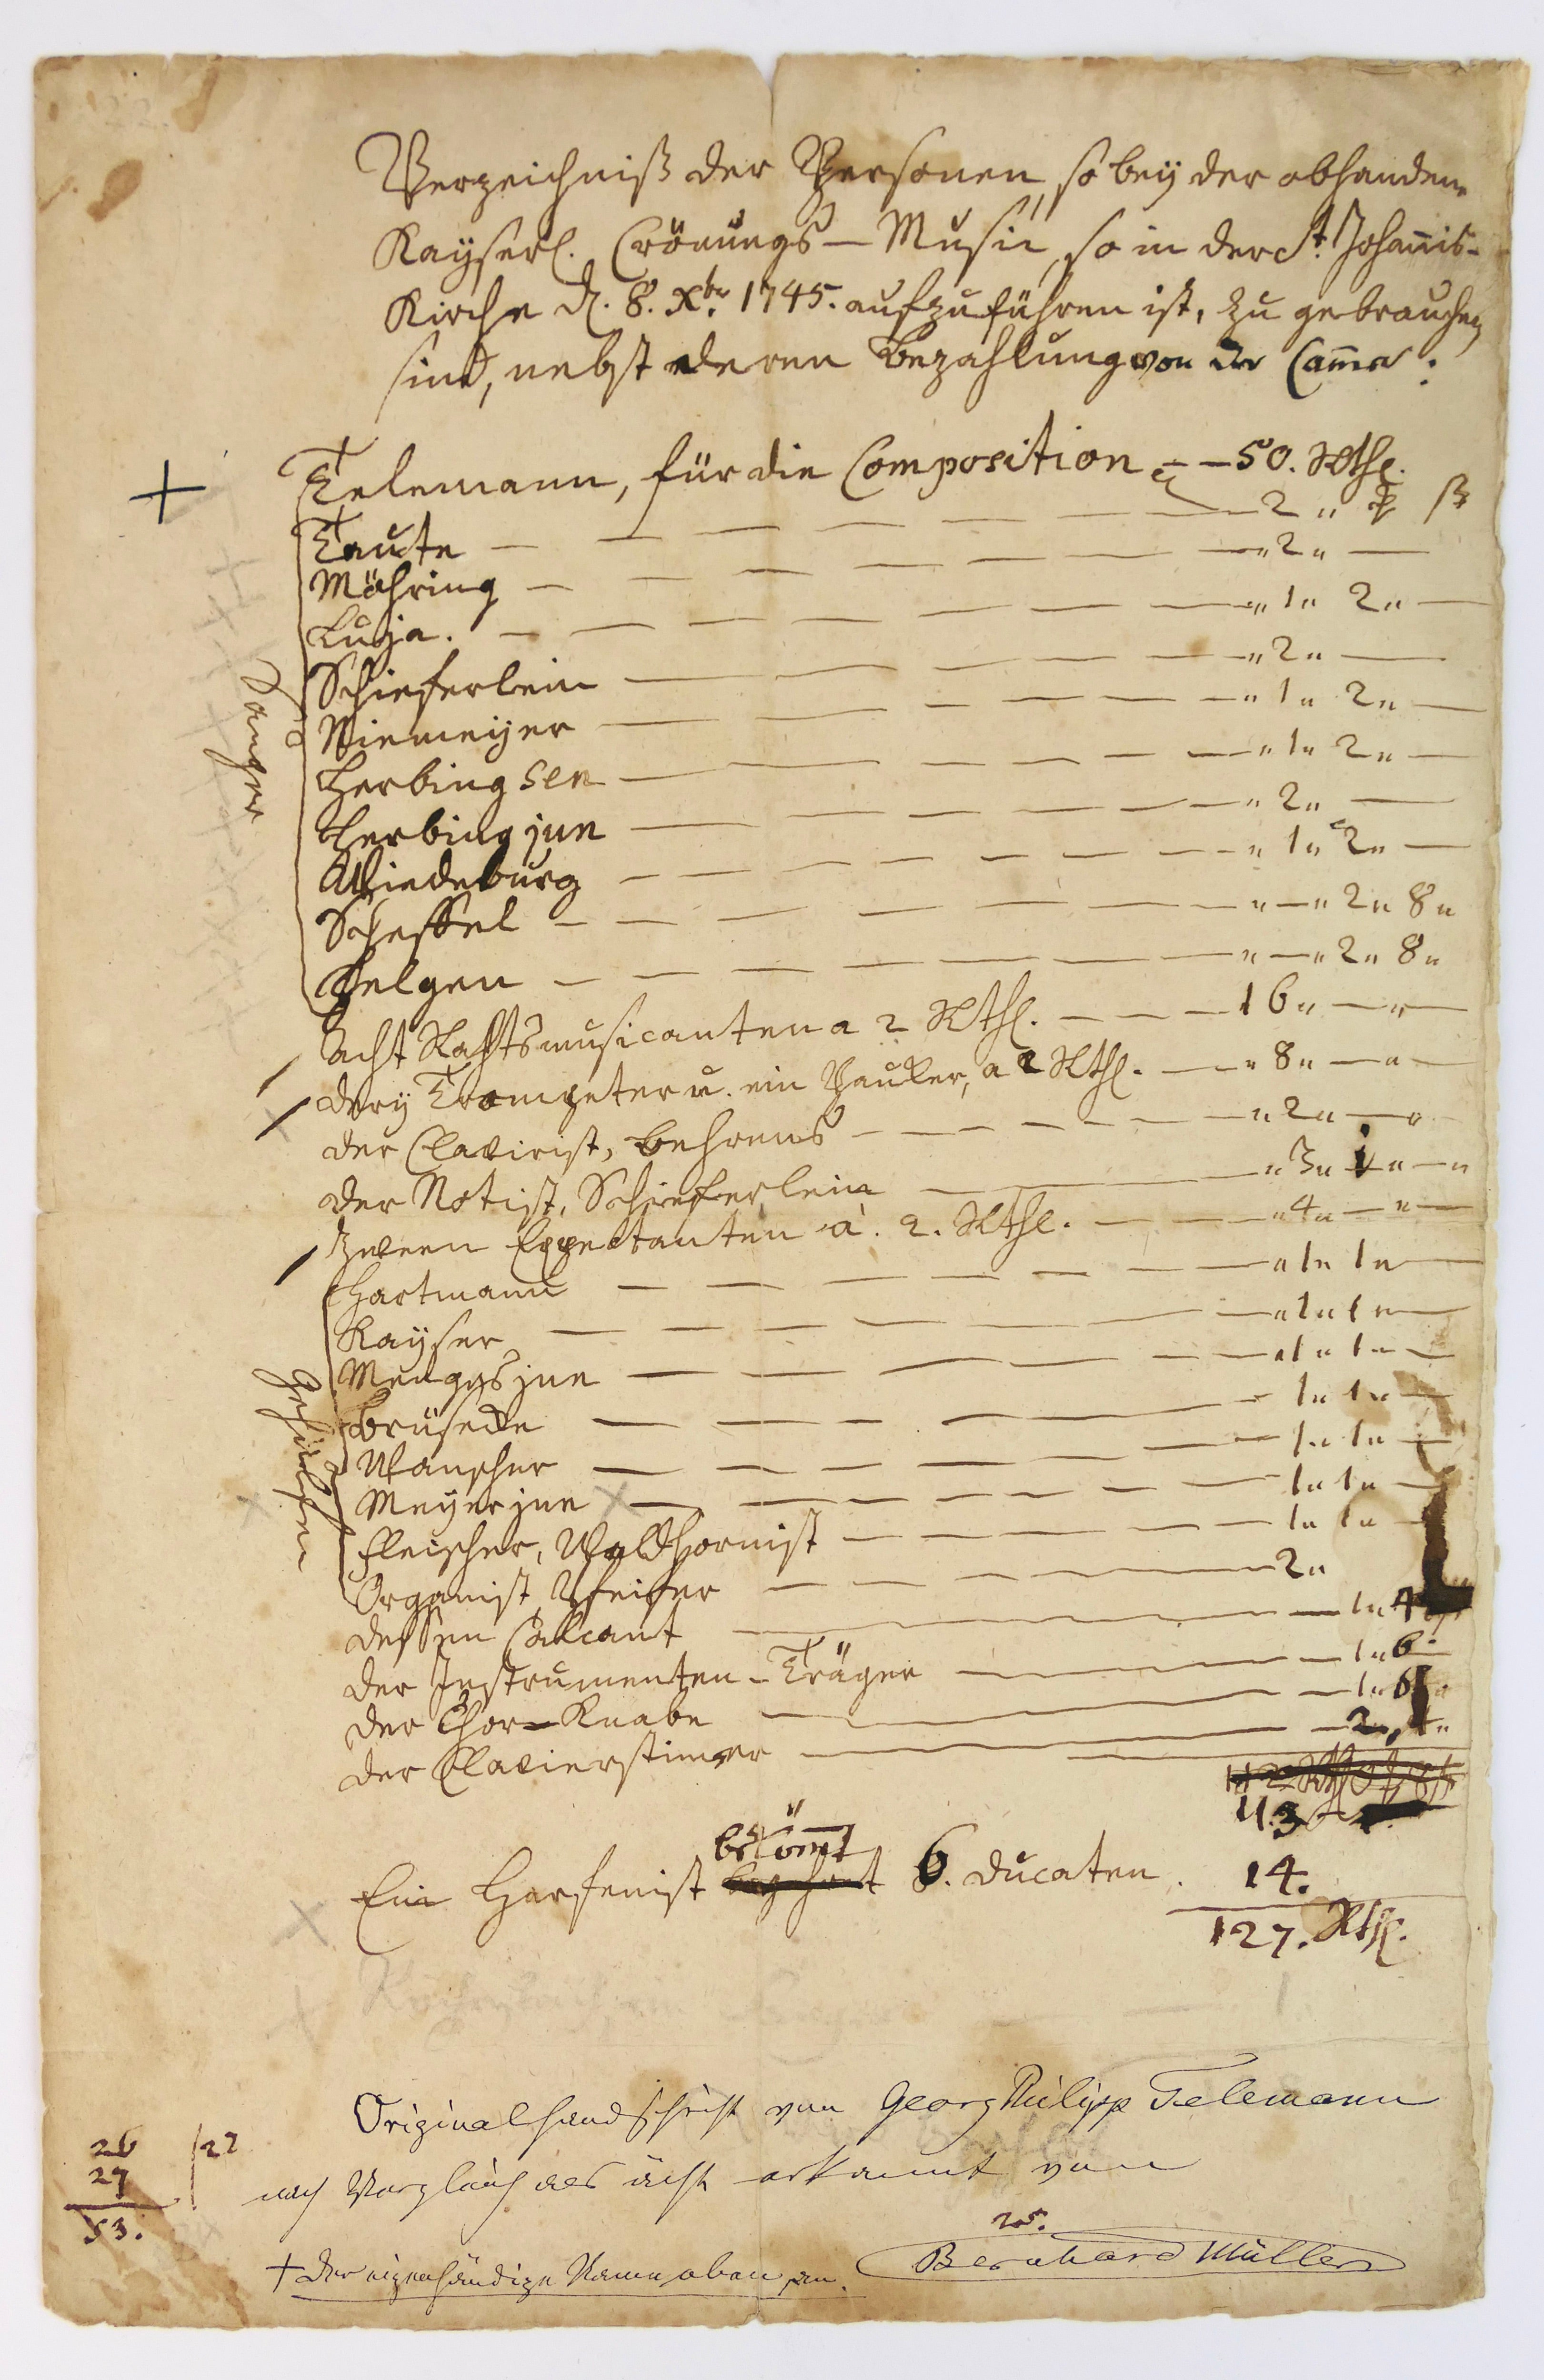 Verzeichniß der Personen, so bey der obhanden
Kayserl. Crönungs-Music, so in der St. Johannis-
Kirche d. 8. Xbr. 1745. aufzuführen ist, zu gebrauchen
sind, nebst deren Bezahlung von der Camer:
+ Telemann, für die Composition — 50. Rthl.
Sänger
Taute — 2 „ ß
Möhring — „ 2 „ —
Luja. — „ 1 „ 2 „ —
Schieferlein — „ 2 „ —
Niemeyer — „ 1 „ 2 „ —
Herbing sen — „ 1 „ 2 „ —
Herbing jun — „ 2 „ —
Wiedeburg — „ 1 „ 2 „ —
Scheffel — „ — „ 2 „ 8 „
Helgen — „ — „ 2 „ 8 „
Acht Rahtsmusicanten a 2 Rthl. — 16 „ — „ —
drey Trompeter u. ein Pauker, a 2 Rthl. — „ 8 „ — „ —
der Clavirist, Behrens — „ 2 „ — „
der Notist, Schieferlein — „ 3 „ — „
Zween Expectanten à. 2. Rthl. — „ 4 „ — „ —
Gehülfen
Hartmann — „ 1 „ 1 „ —
Kayser — „ 1 „ 1 „ —
Menges jun — „ 1 „ 1 „ —
Brüsecke — 1 „ 1 „ —
Manscher — 1 „ 1 „ —
Meyer jun — 1 „ 1 „ —
Fleischer, Waldhornist — 1 „ 1 „ —
Organist Pfeifer — 2 „
dessen Calcant — 1 „ 4
der Instrumenten-Träger — 1 „ 6
der Chor-Knabe — 1 „ 6
der Clavierstimer — 2 „ 4 „
113
bekömt
Ein Harfenist 6. Ducaten. 14.
127. Rthl.
Originalhandschrift von Georg Philipp Telemann
nach Vergleich als ächt erkannt von
Bernhard Müller
+ Der eigenhändige Name oben an.
26 /22
27
53.